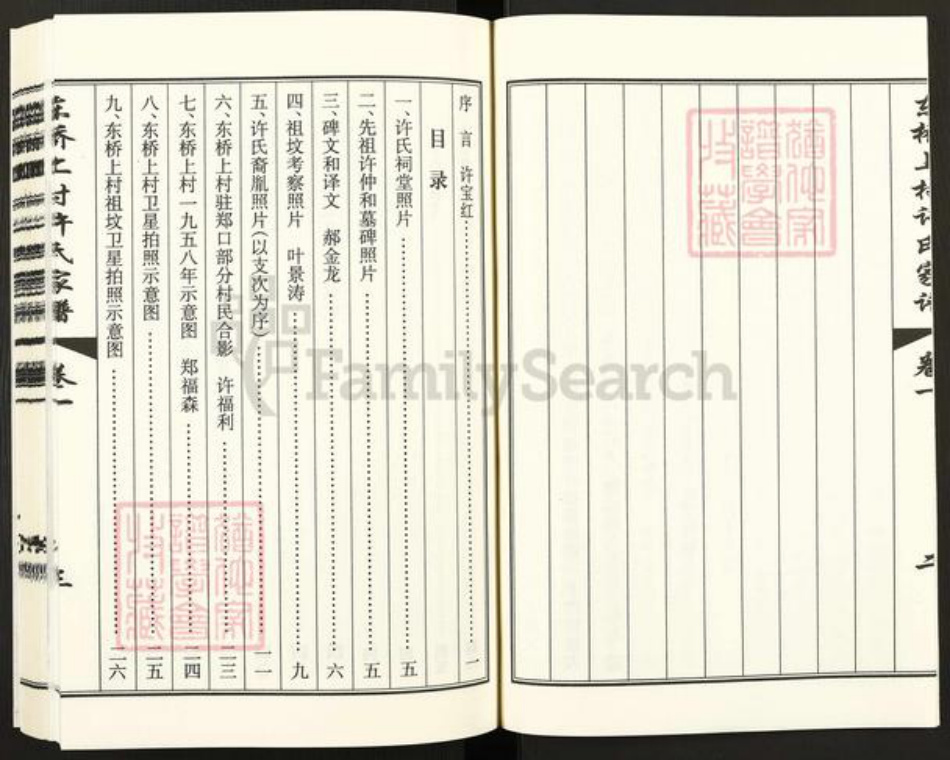 东桥上村许氏家谱
卷一
二
序言 许宝红 一
目录
一、许氏祠堂照片 五
二、先祖许仲和墓碑照片 五
三、碑文和译文 郝金龙 六
四、祖坟考察照片 叶景涛 九
五、许氏裔胤照片(以支次为序) 一一
六、东桥上村驻郑口部分村民合影 许福利 二三
七、东桥上村一九五八年示意图 郑福森 二四
八、东桥上村卫星拍照示意图 二五
九、东桥上村祖坟卫星拍照示意图 二六
东桥上村许氏家谱
卷一
三
FamilySearch